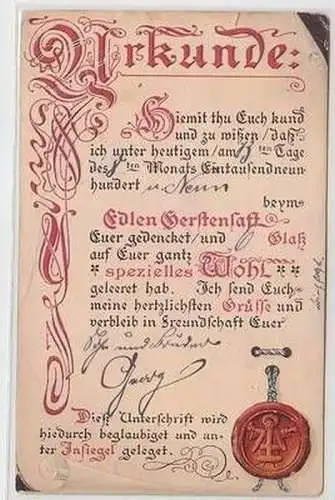 Urkunde:
Hiemit thu Euch kund
und zu wißen/Daß
ich unter heutigem/am 13 ten Tage
des ten Monats Eintausendneun
hundert u. Neun
beym
Edlen Gerstensaft
Euer gedencket/und Glaß
auf Euer gantz
spezielles Wohl
geleeret hab. Ich send Euch
meine hertzlichsten Grüsse und
verbleib in Freundschaft Euer
Sohn und Bruder
Georg
Diese Unterschrift wird
hiedurch beglaubiget und un-
ter Insiegel geleget.